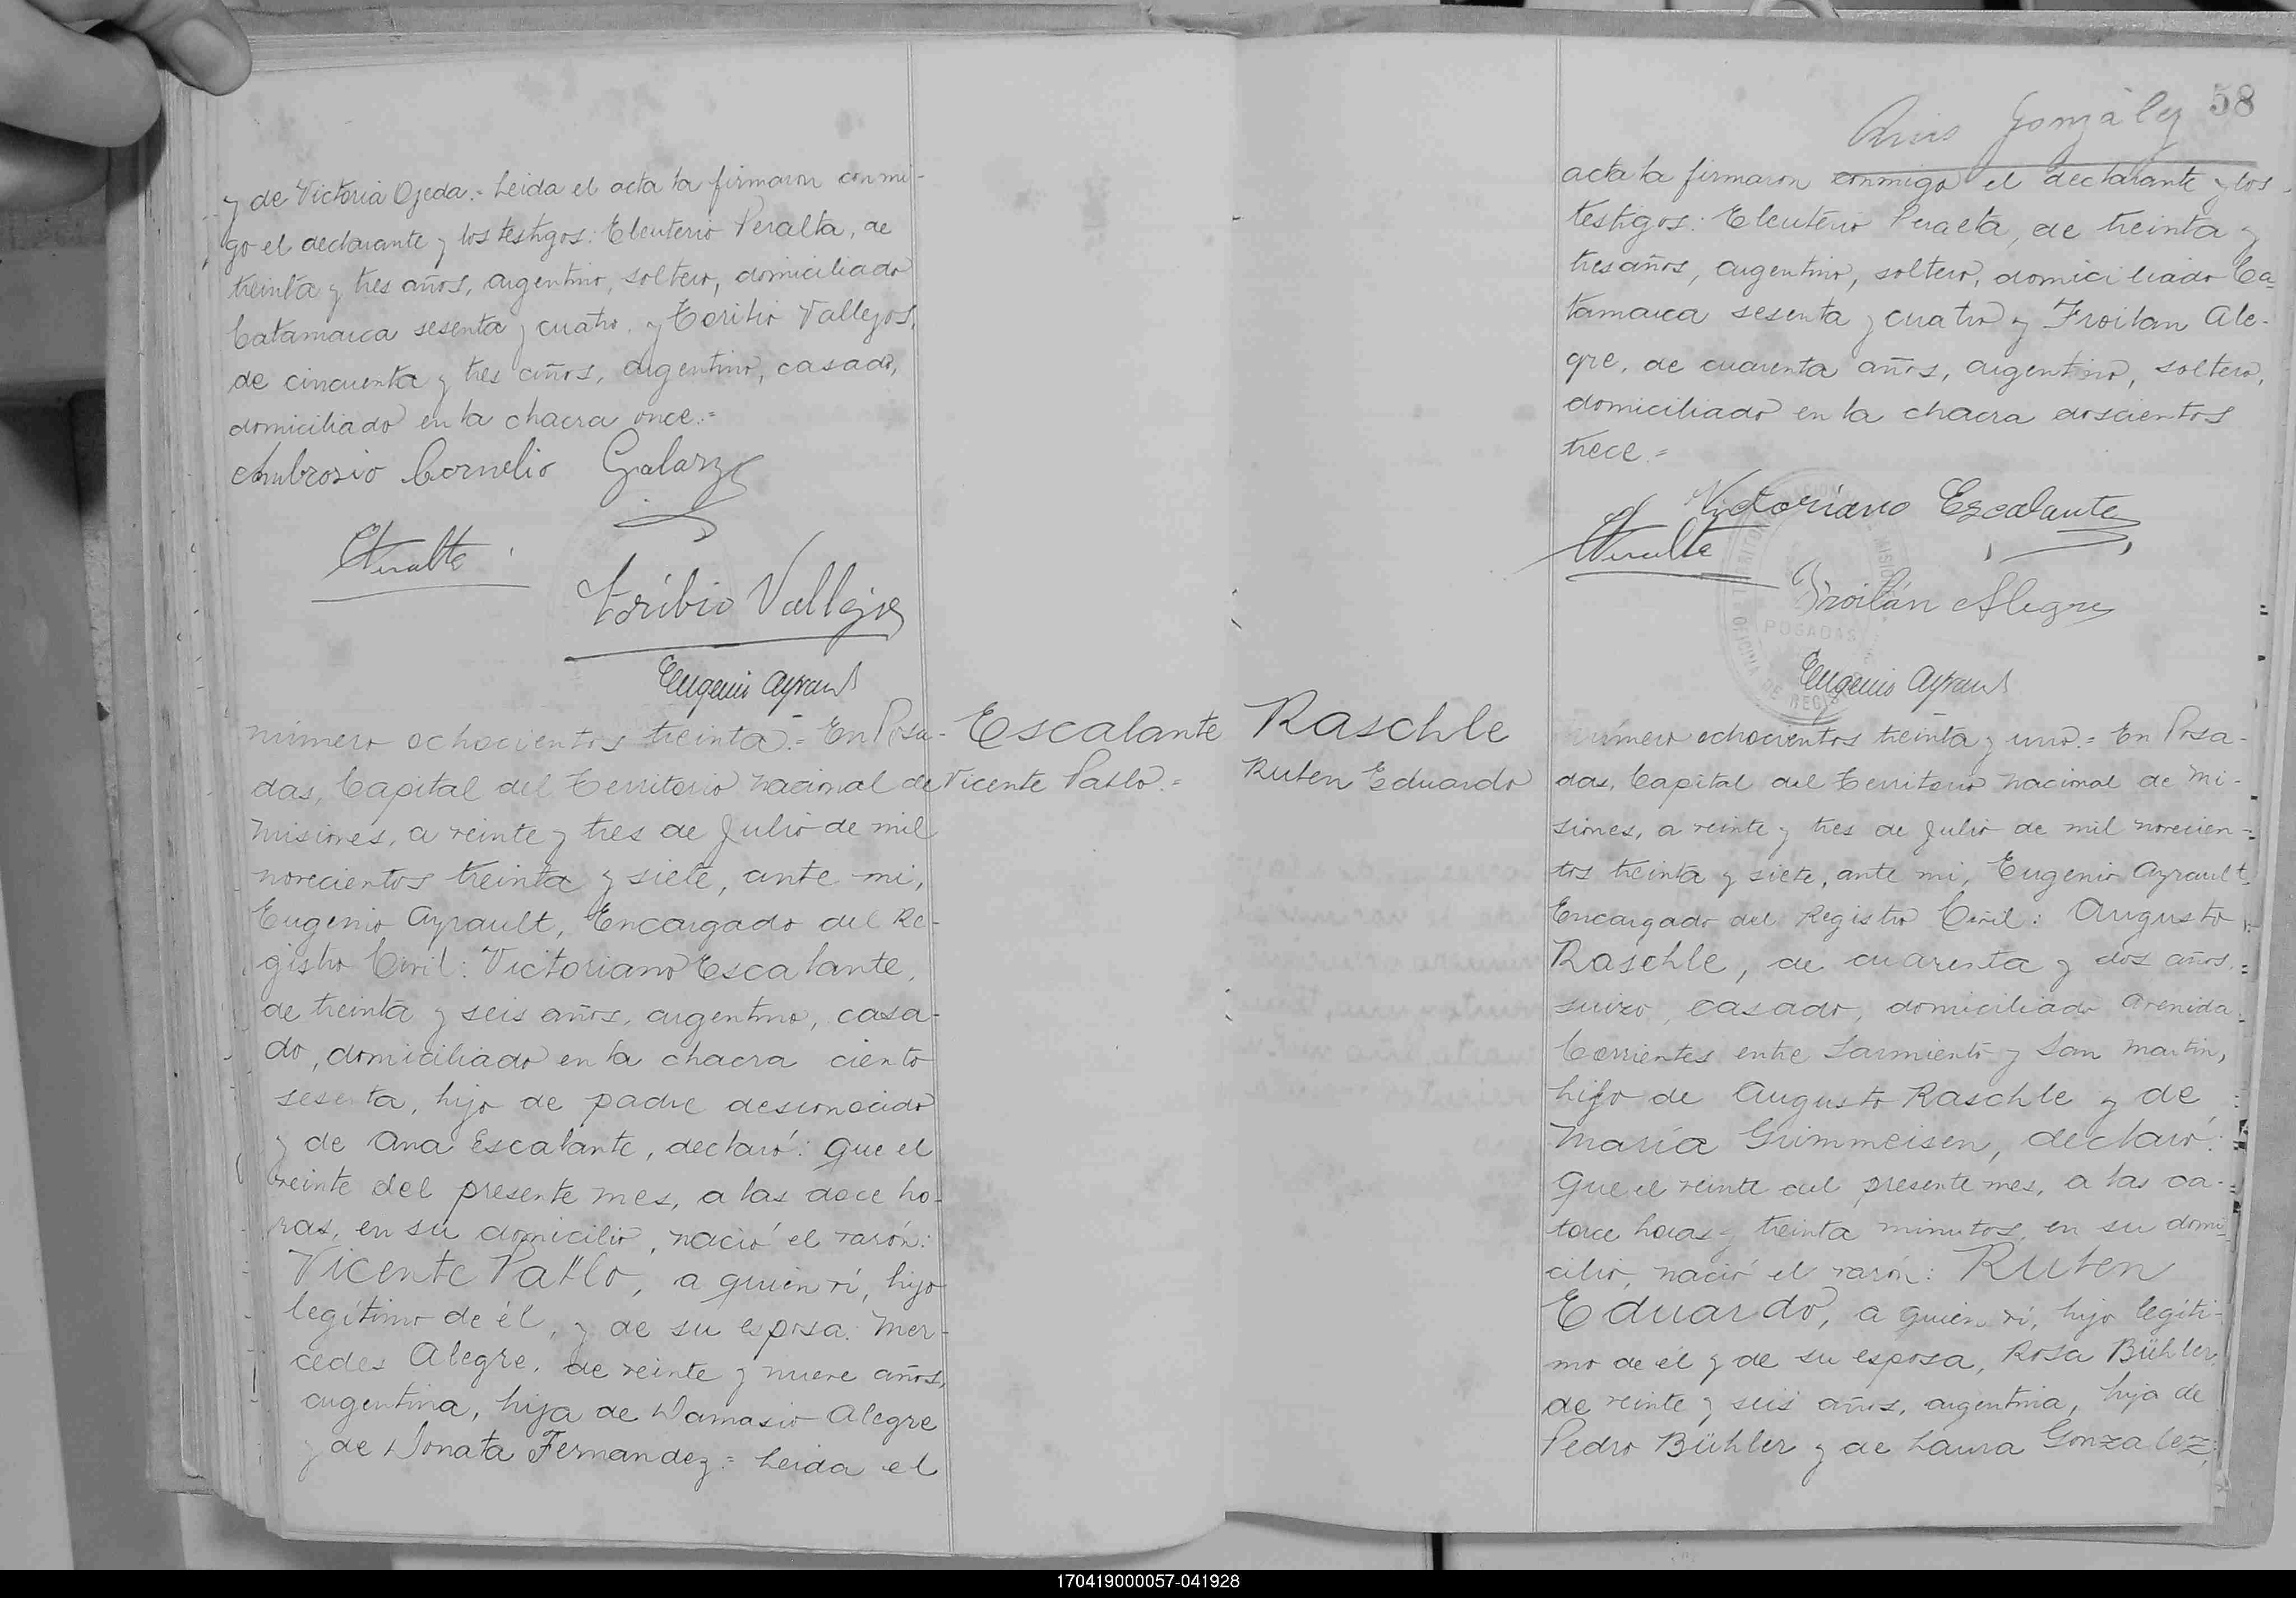 y de Victoria Ojeda.= Leida el acta la firmaron conmi-
go el declarante y los testigos: Eleuterio Peralta, de
treinta y tres años, argentino, soltero, domiciliado
Catamarca sesenta y cuatro, y Toribio Vallejos,
de cincuenta y tres años, argentino, casado,
domiciliado en la chacra once.=
Ambrosio Cornelio Galarz
EPeralta
Toribio Vallejos
Eugenio Ayrault
número ochocientos treinta.= En Posa-
das, Capital del Territorio Nacional de
Misiones, a veinte y tres de Julio de mil
novecientos treinta y siete, ante mi,
Eugenio Ayrault, Encargado del Re-
gistro Civil: Victoriano Escalante,
de treinta y seis años, argentino, casa-
do, domiciliado en la chacra ciento
sesenta, hijo de padre desconocido
y de Ana Escalante, declaró: Que el
veinte del presente mes, a las doce ho-
ras, en su domicilio, nació el varón:
Vicente Pablo, a quien ví, hijo
legítimo de él, y de su esposa: Mer-
cedes Alegre, de veinte y nueve años,
argentina, hija de Damasio Alegre
y de Donata Fernandez= Leida el
Escalante
Vicente Pablo.=
58
González
acta la firmaron conmigo el declarante y los
testigos: Eleuterio Peralta, de treinta y
tres años, argentino, soltero, domiciliado Ca-
tamarca sesenta y cuatro y Froilan Ale-
gre, de cuarenta años, argentino, soltero,
domiciliado en la chacra doscientos
trece.=
Victoriano Escalante
EPeralta
Froilán Alegre
POSADAS
Eugenio Ayrault
Raschle
Ruben Eduardo
número ochocientos treinta y uno.= En Posa-
das, Capital del Territorio Nacional de Mi-
siones, a veinte y tres de Julio de mil novecien-
tos treinta y siete, ante mi, Eugenio Ayrault,
Encargado del Registro Civil: Augusto
Raschle, de cuarenta y dos años,
suizo, casado, domiciliado Avenida
Corrientes entre Sarmiento y San Martin,
hijo de Augusto Raschle y de
María Grimmeisen, declaró:
Que el veinte del presente mes, a las ca-
torce horas y treinta minutos, en su domi-
cilio, nació el varón: Ruben
Eduardo, a quien ví, hijo legíti-
mo de él y de su esposa, Rosa Bühler,
de veinte y seis años, argentina, hija de
Pedro Bühler y de Laura Gonzalez,
170419000057-041928